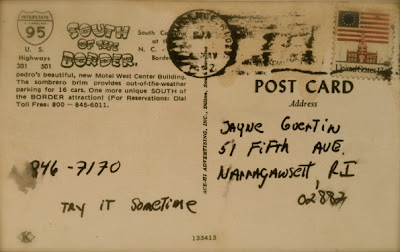 INTERSTATE
95
U. S.
Highways
301 501
SOUTH
OF THE
BORDER
South C
at
N. C.
Borde
pedro's beautiful, new Motel West Center Building.
The sombrero brim provides out-of-the-weather
parking for 16 cars. One more unique SOUTH of
the BORDER attraction! (For Reservations: Dial
Toll Free: 800 — 845-6011.
846-7170
TRY IT SOMETIME
K
ACE-HI ADVERTISING, INC., Dillon,
133413
United States
POST CARD
Address
JAYNE GUERTIN
51 FIFTH AVE.
NARRAGAWSETT, R.I
02882